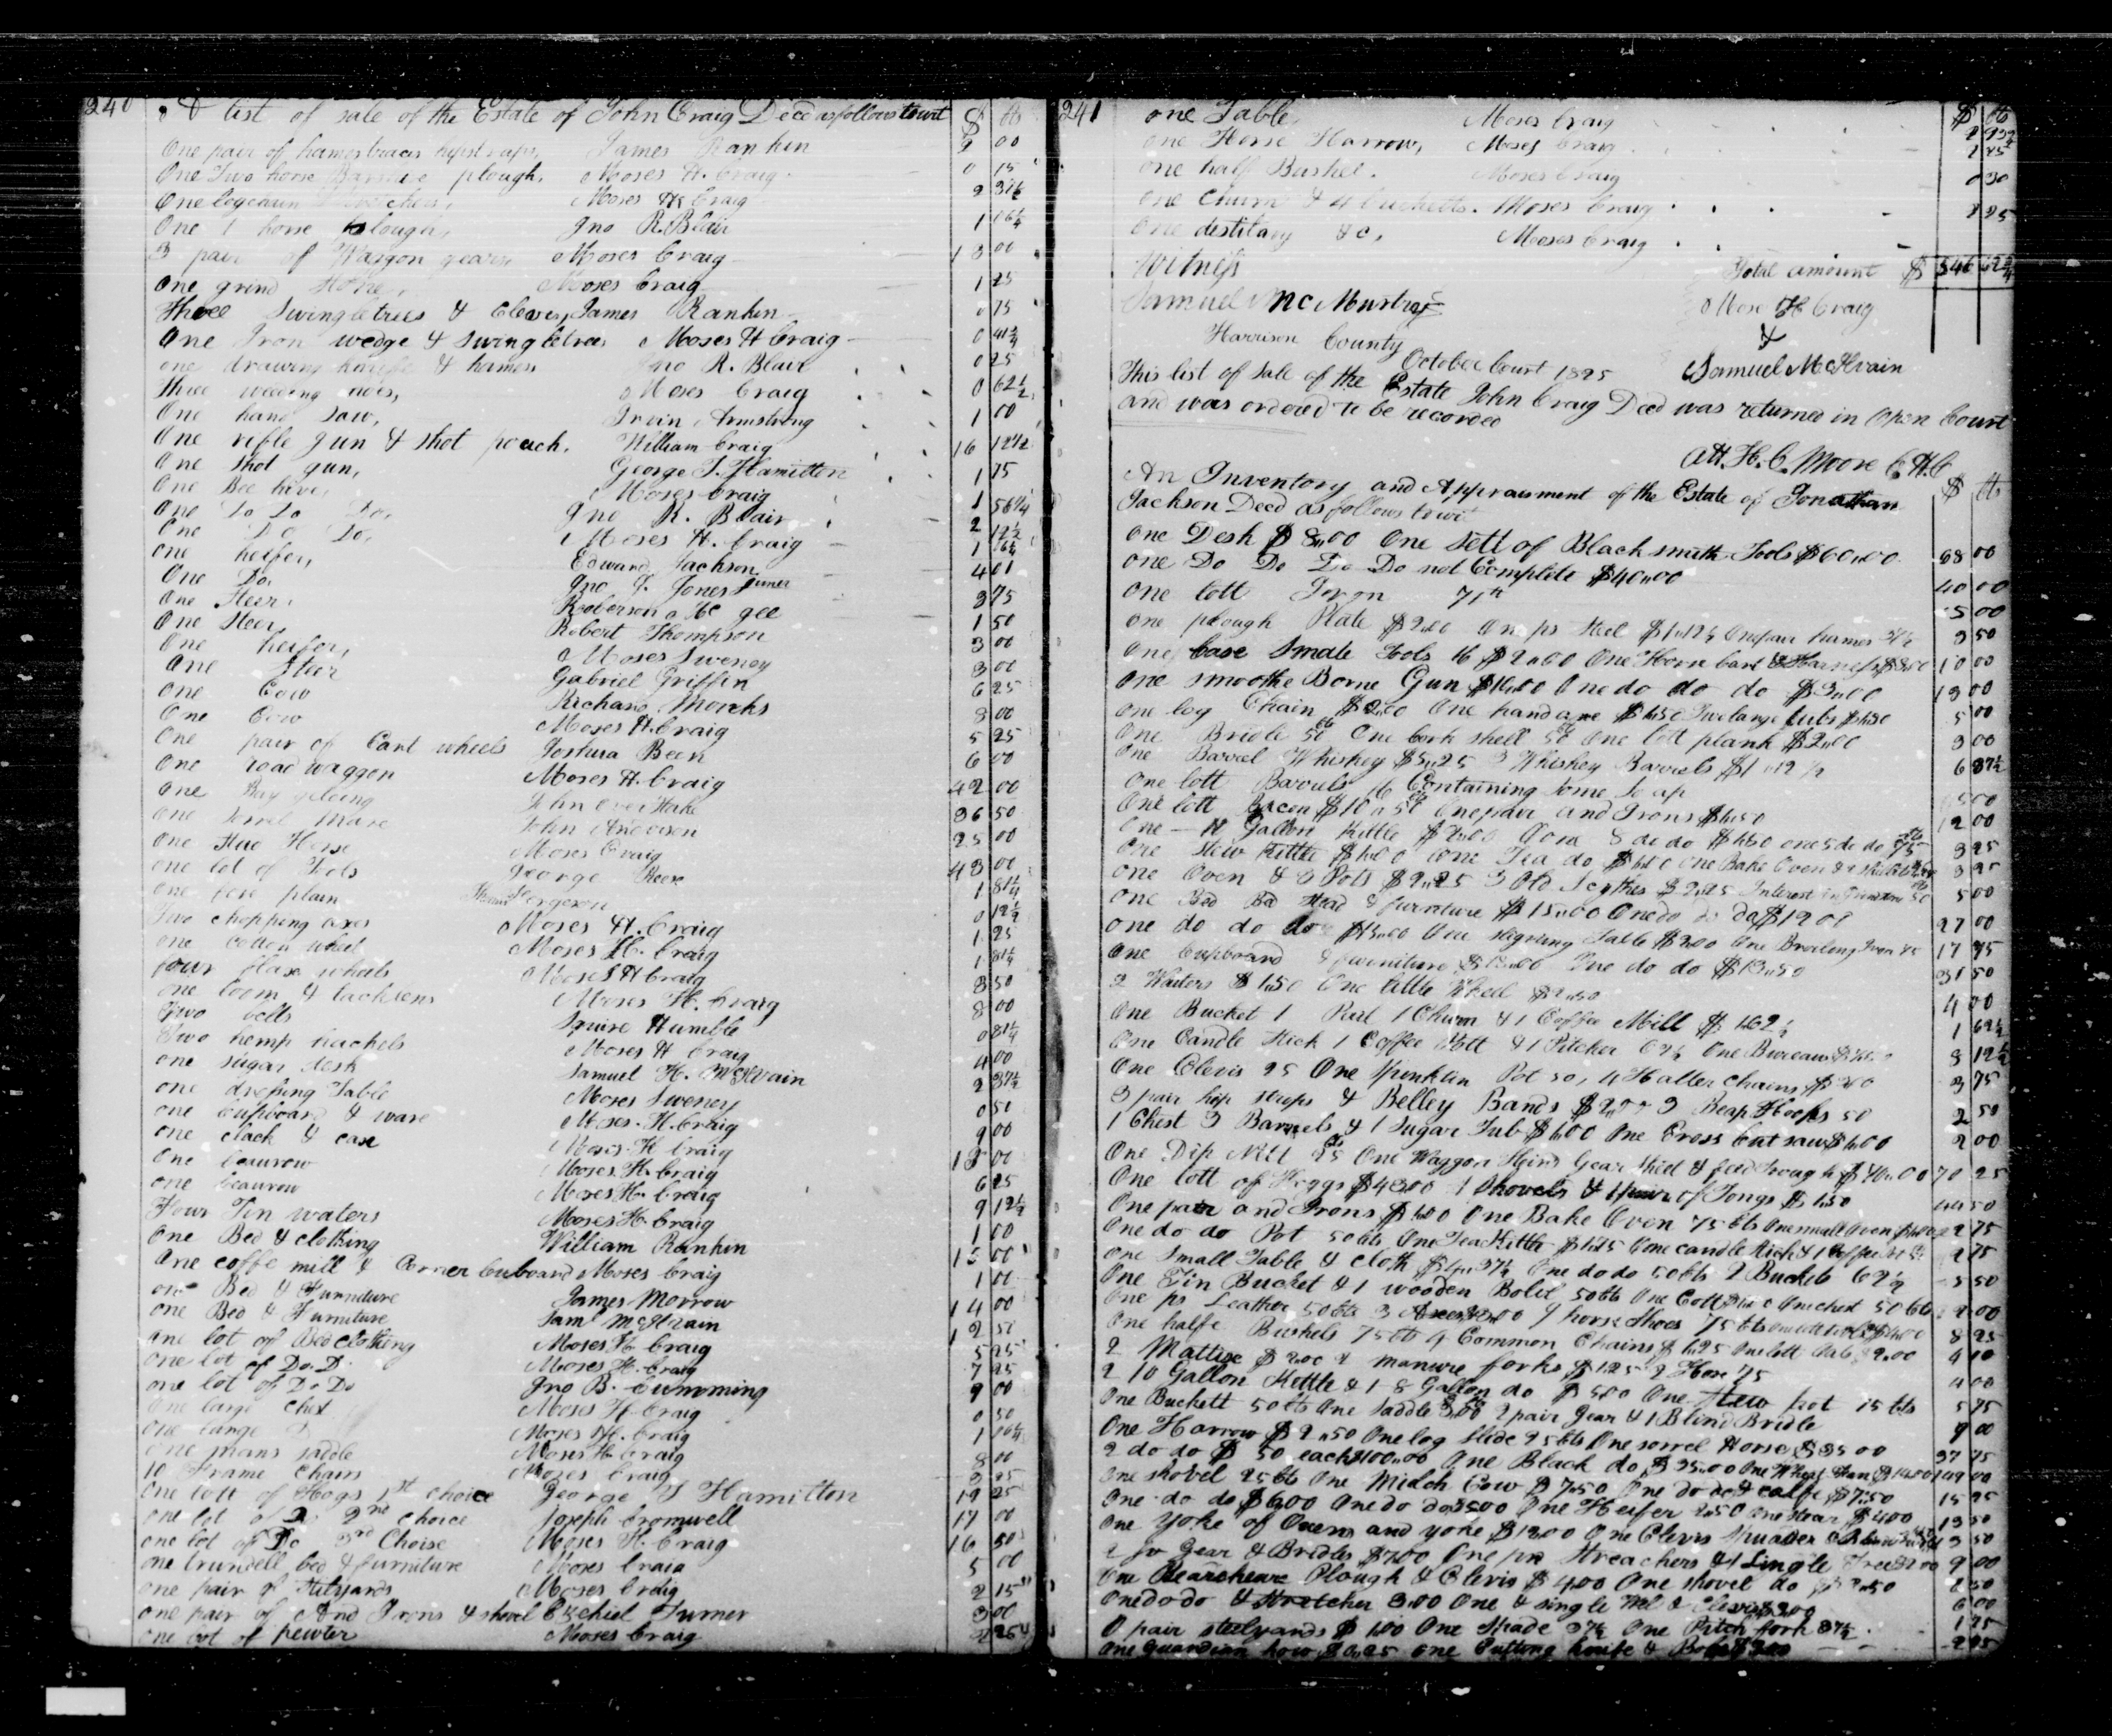 240
A list of sale of the Estate of John Craig Decd as follows towit $ cts
One pair of hames traces hipstraps, James Rankin 2 00
One Two horse Barshire plough, Moses H. Craig 0 15
One logchain Moses H Craig 2 37½
One 1 horse plough, Jno R. Blair 1 06¼
3 pair of Waggon gears Moses Craig 13 00
One grind Stone, Moses Craig 1 25
Three Swingletrees & Clevis, James Rankin 0 75
One Iron wedge & Swingletrees Moses H Craig 0 41¾
one drawing knife & hames Jno R. Blair 0 25
three weeding hoes, Moses Craig 0 62½
One hand saw, Irvin Armstrong 1 00
One rifle gun & shot pouch. William Craig 16 12½
One Shot gun, George T. Hamilton 1 75
One Bee hive, Moses Craig 1 56¼
One Do Do Do, Jno R. Blair 2 12½
One Do Do, Moses H. Craig 1 06¼
one heifer, Edward Jackson 4 01
One Do. Jno T. Jones Juner 3 75
One Steer, Roberson Mc gee 1 50
One Steer, Robert Thompson 3 00
One heifer, Moses Sweney 3 00
One Steer Gabriel Griffin 6 25
One Cow Richard Morehs 8 00
One Cow Moses H. Craig 5 25
One pair of Cart wheels Joshua Been 6 00
One road waggon Moses H. Craig 42 00
One Bay gelding John Overstake 36 50
one sorrel mare John Anderson 25 00
One Stud Horse Moses Craig 43 00
one lot of Tools George Reese 1 81¼
one fore plain Thomas Fergeson 0 12½
Two chopping axes Moses H. Craig 1 25
one cotton wheel Moses H. Craig 1 81¼
four flax wheels Moses H Craig 3 50
one loom & tacksens Moses H. Craig 8 00
Two bells Squire Humble 0 81¼
Two hemp hachels Moses H Craig 4 00
one sugar desk Samuel H. McIlvain 2 37½
one dressing Table Moses Sweney 0 50
one cupboard & ware Moses H. Craig 9 00
one clack & case Moses H Craig 18 00
One beaurow Moses H. Craig 6 25
one beaurow Moses H. Craig 9 12½
Four Tin waters Moses H. Craig 1 00
One Bed & clothing William Rankin 15 00
One coffe mill & Corner Cuboard Moses Craig 1 00
one Bed & Furniture James Morrow 14 00
one Bed & Furniture Saml McIlvain 12 50
one lot of Bed clothing Moses H. Craig 5 25
One lot of Do. D. Moses H. Craig 7 25
one lot of Do Do Jno B. Cumming 9 00
One large chest Moses H. Craig 0 50
One large D Moses H. Craig 1 06¼
One mans saddle Moses H. Craig 8 00
10 Frame Chairs Moses Craig 3 25
One lott of Hogs 1st choice George T Hamilton 19 25
one lot of D 2nd choice Joseph Cromwell 17 00
one lot of Do 3rd Choise Moses H. Craig 16 50
one trundell bed & furniture Moses Craig 5 00
one pair of Stilyards Moses Craig 2 15
one pair of And Irons & shovel Ezekiel Turner 3 00
One lot of pewter Moses Craig 2 25
241
one Table, Moses Craig $ cts
one Horse Harrow, Moses Craig
one half Bushel. Moses Craig 0 30
one Churn & 4 bucketts. Moses Craig 2 25
One distilary &c, Moses Craig
Witness Total amount $ 546 62¾
Samuel McMurtrey Mose H Craig
Harrison County &
October Court 1825 Samuel McIlvain
This list of sale of the Estate John Craig Decd was returned in Open Court
and was ordered to be recorded
Att. H. C. Moore C.H.C
An Inventory and Appraisment of the Estate of Jonathan $ cts
Jackson Decd as follows towit
One Desk $8.00 One Sett of Black smith Tools $60.00 68 00
one Do Do Do Do not Complete $40.00 40 00
one lott Iron 5 00
one plough Plate $2.00 One ps Steel $1.12½ One pair hames 37½ 3 50
One case Smale Tools 16 $2.00 One Horn cart & Harness $8.00 10 00
One smoothe Borne Gun $10.00 One do do do $3.00 13 00
one log Chain $2.00 One hand axe $1.50 Two large tubs $1.50 5 00
One Bridle 50 One cork shell 50 One lott plank $2.00 3 00
One Barrel Whiskey $5.25 3 Whiskey Barrels $1.12½ 6 37½
One lott Barrels 16 Containing Some Soap 5 00
One lott Bacon $10.50 One pair and Irons $1.50 12 00
One 10 Gallon Kittle $2.00 One 8 do do $1.50 one 5 do do 3 25
One Stew Kettle $1.00 One Tea do One Bake Oven & Skillet 3 25
one Oven & 3 Pots $2.25 3 Old Scythes $2.25 Interest in Grindstone 50 5 00
One Bed Bed Stead & furniture $15.00 One do do do $12.00 27 00
one do do do $15.00 One Table $2.00 One Broiling Iron 75 17 75
One Cupboard & furniture $18.00 One do do $13.50 31 50
2 Waiters $1.50 One little Wheel $2.50 4 00
One Bucket 1 Pail 1 Churn & 1 Coffee Mill $1.62½ 1 62½
One Candle Stick 1 Coffee Pott & 1 Pitcher 62½ One Bureau 8 12½
One Clevis 25 One Sprinklin Pot 50, 4 Halter Chains $3.00 3 75
3 pair hip straps & Belley Bands $2.00 3 Reap Hooks 50 2 50
1 Chest 3 Barrels & 1 Sugar Tub $1.00 One Cross Cut saw $1.00 2 00
One Dip Nett 25 One Waggon Hind Gear Sheet & feed Trough $70.00 70 25
One lott of Hoggs $43.00 1 Shovels & 1 pair of Tongs $1.50 44 50
One pair and Irons $1.00 One Bake Oven 75 cts One small Oven $1.00 2 75
One do do Pot 50 cts One Tea Kettle $1.25 One candle Stick & 1 Coffee pot 2 75
One Small Table & Cloth $4.37½ One do do 50 cts 2 Buckets 62½ 5 50
One Tin Bucket & 1 wooden Bolet 50 cts One Cott One chest 50 cts 2 00
One ps Leather 50 cts 3 Axes $3.00 9 horse Shoes 75 cts One lott tools $4.00 8 25
One halfe Bushels 75 cts 4 Common Chains $1.25 One lott 2.00 4 10
2 Mattixe $2.00 2 manure forks $1.25 2 Hoes 75 4 00
2 10 Gallon Kettle & 1-8 Gallon do $5.00 One Stew pot 75 cts 5 75
One Buckett 50 cts One Saddle 3.00 2 pair Gear & 1 Blind Bridle 9 00
One Harrow $2.50 One log slide 25 cts One sorrel Horse $35.00 37 75
2 do do $50 each $100.00 One Black do $35.00 One Wheat Fan $14.00 149 00
One shovel 25 cts One Milch Cow $7.50 One do do & calfe $7.50 15 25
One do do $6.00 One do do $5.00 One Heifer 2.50 One stear $4.00
One Yoke of Oxens and yoke $12.00 One Clevis 3 50
2 pr Gear & Bridles $7.00 One pr Streachers & 1 Single Tree 2.00 9 00
One Bearsheare Plough & Clevis $4.00 One shovel do 6 50
One do do & Stretcher 3.00 One & single 6 00
1 pair steelyards $1.00 One Spade 37½ One Pitch fork 37½ 1 75
One Guardian how $0.25 one Cutting knife & Box $2.00 2 25